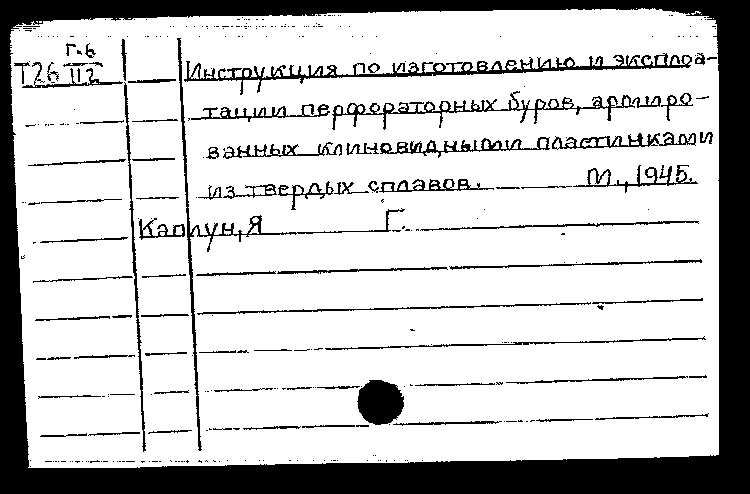 Г.6
Т26 II2 Инструкция по изготовлению и эксплоа-
тации перфораторных буров, армиро-
ванных клиновидными пластинками
из твердых сплавов. М., 1945.
Каплун, Я Г.